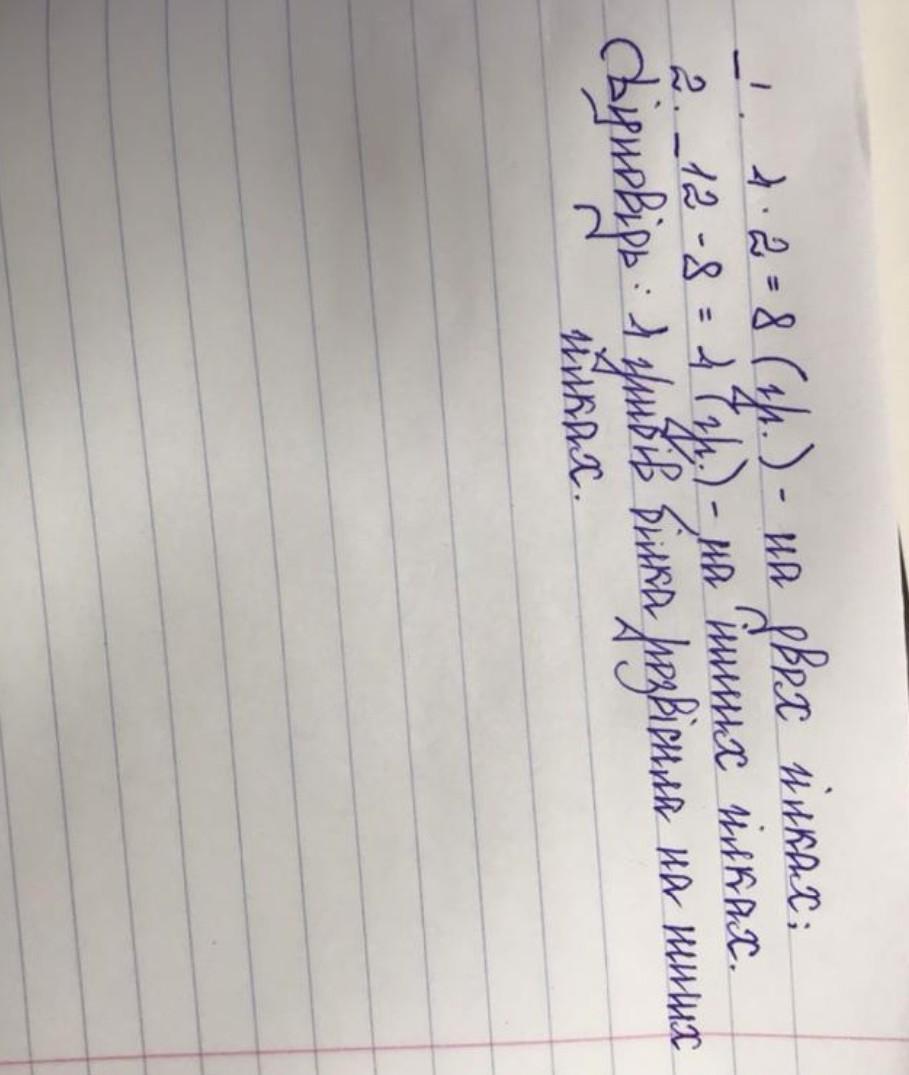 1. 4 · 2 = 8 (гр.) - на двох гілках;
2. 12 - 8 = 4 (гр.) - на інших гілках.
Відповідь: 4 грибів білка розвісила на інших
гілках.